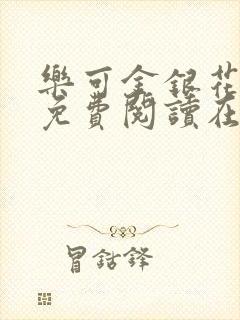 樂可金銀花
免費閱讀在
冒鈷鋒